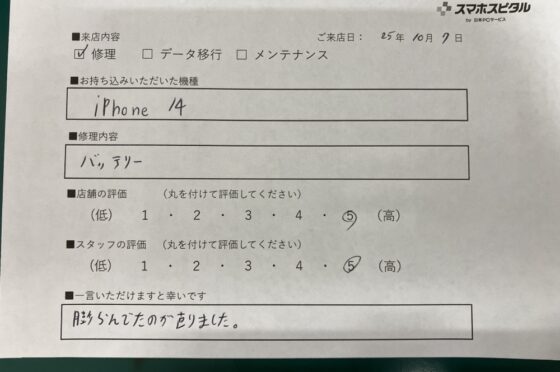 スマホスピタル
by 日本PCサービス
■来店内容 ご来店日： 25年 10月 9日
☑ 修理 □ データ移行 □ メンテナンス
■お持ち込みいただいた機種
iPhone 14
■修理内容
バッテリー
■店舗の評価 （丸を付けて評価してください）
（低） 1 ・ 2 ・ 3 ・ 4 ・ ⑤ （高）
■スタッフの評価 （丸を付けて評価してください）
（低） 1 ・ 2 ・ 3 ・ 4 ・ ⑤ （高）
■一言いただけますと幸いです
膨らんでたのが直りました。